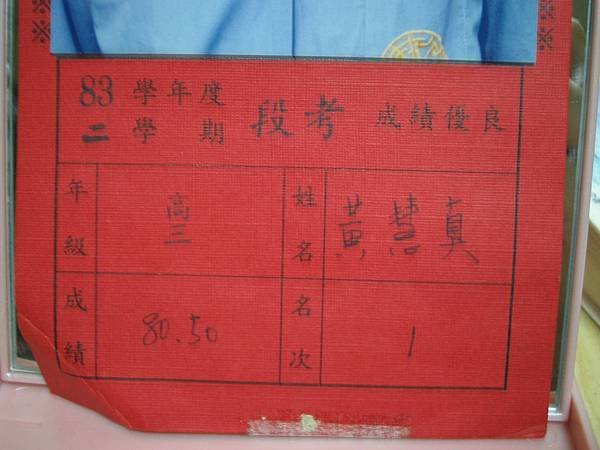 83 學年度
二 學 期 段考 成績優良
年級 高三 姓名 黃慧真
成績 80.50 名次 1